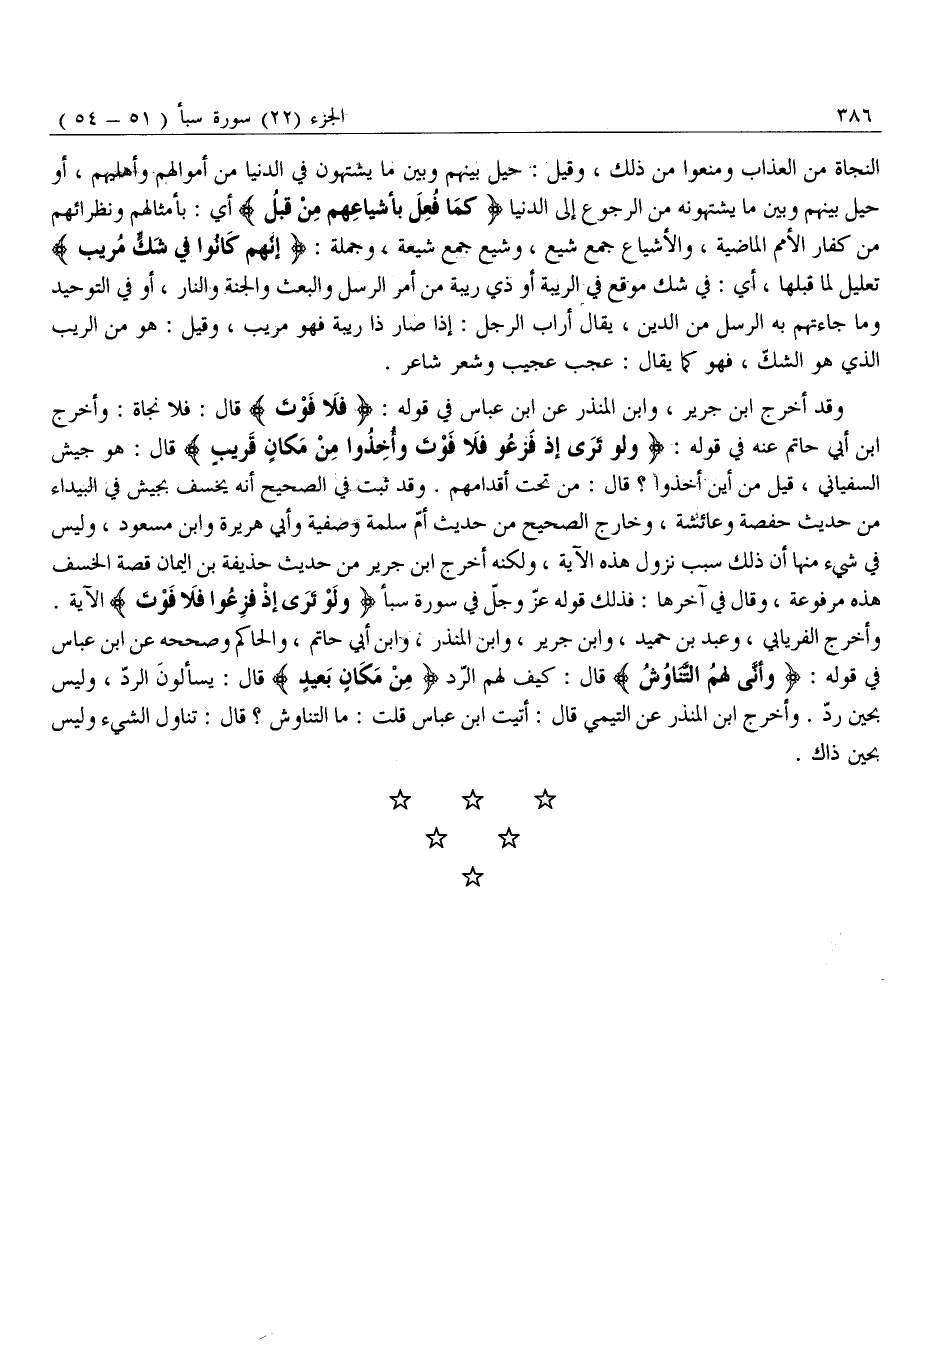 ٣٨٦ الجزء (٢٢) سورة سبأ ( ٥١ – ٥٤ )
النجاة من العذاب ومنعوا من ذلك ، وقيل : حيل بينهم وبين ما يشتهون في الدنيا من أموالهم وأهليهم ، أو
حيل بينهم وبين ما يشتهونه من الرجوع إلى الدنيا ﴿ كمَا فُعِلَ بأشياعِهم مِنْ قبلُ ﴾ أي : بأمثالهم ونظرائهم
من كفار الأمم الماضية ، والأشياع جمع شيع ، وشيع جمع شيعة ، وجملة : ﴿ إنَّهم كَانُوا في شَكٍّ مُريب ﴾
تعليل لما قبلها ، أي : في شك موقع في الريبة أو ذي ريبة من أمر الرسل والبعث والجنة والنار ، أو في التوحيد
وما جاءتهم به الرسل من الدين ، يقال أراب الرجل : إذا صار ذا ريبة فهو مريب ، وقيل : هو من الريب
الذي هو الشكّ ، فهو كما يقال : عجب عجيب وشعر شاعر .
وقد أخرج ابن جرير ، وابن المنذر عن ابن عباس في قوله : ﴿ فَلَا فَوْتَ ﴾ قال : فلا نجاة : وأخرج
ابن أبي حاتم عنه في قوله : ﴿ ولو تَرَى إذ فَزِعُو فلَا فَوْتَ وأُخِذُوا مِنْ مَكانٍ قَريبٍ ﴾ قال : هو جيش
السفياني ، قيل من أين أخذوا ؟ قال : من تحت أقدامهم . وقد ثبت في الصحيح أنه يخسف بجيش في البيداء
من حديث حفصة وعائشة ، وخارج الصحيح من حديث أمّ سلمة وصفية وأبي هريرة وابن مسعود ، وليس
في شيء منها أن ذلك سبب نزول هذه الآية ، ولكنه أخرج ابن جرير من حديث حذيفة بن اليمان قصة الخسف
هذه مرفوعة ، وقال في آخرها : فذلك قوله عزّ وجلّ في سورة سبأ ﴿ ولَوْ تَرَى إذْ فزِعُوا فلَا فَوْتَ ﴾ الآية .
وأخرج الفريابي ، وعبد بن حميد ، وابن جرير ، وابن المنذر ، وابن أبي حاتم ، والحاكم وصححه عن ابن عباس
في قوله : ﴿ وأنَّى لهمُ التَّناوُشُ ﴾ قال : كيف لهم الرّد ﴿ مِنْ مَكَانٍ بَعيدٍ ﴾ قال : يسألون الردّ ، وليس
بحين ردّ . وأخرج ابن المنذر عن التيمي قال : أتيت ابن عباس قلت : ما التناوش ؟ قال : تناول الشيء وليس
بحين ذاك .
☆ ☆ ☆
☆ ☆
☆